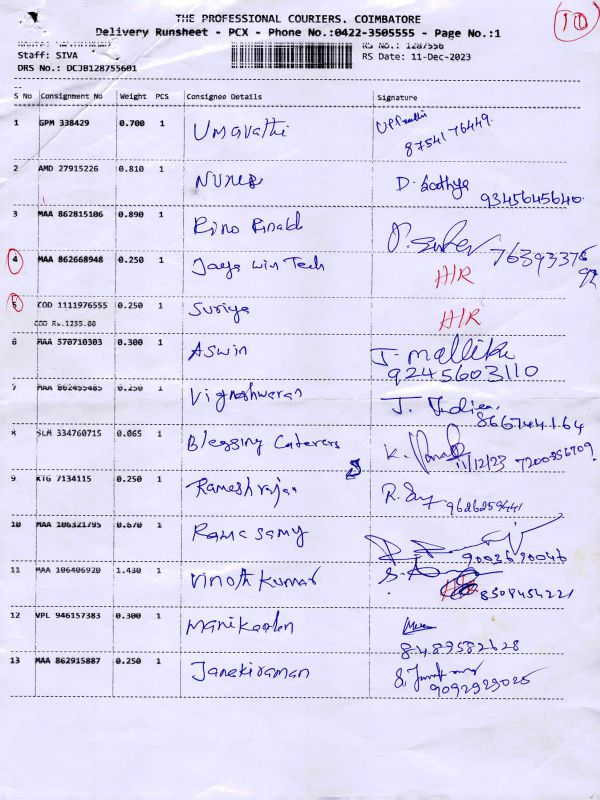 10
THE PROFESSIONAL COURIERS, COIMBATORE
Delivery Runsheet - PCX - Phone No.:0422-3505555 - Page No.:1
RS No.: 1287556
Staff: SIVA RS Date: 11-Dec-2023
DRS No.: DCJB128755601
S No Consignment No Weight PCS Consignee Details Signature
1 GPM 338429 0.700 1 Umavathi
8754176449.
2 AMD 27915226 0.810 1 D. Sathya 9345645640.
3 MAA 862815106 0.890 1 Rino Rinald
4 MAA 862668948 0.250 1 Jaya Win Tech 76393375
H/R 92
5 COD 1111976555 0.250 1 Suriya H/R
COD Rs.1235.00
6 MAA 570710303 0.300 1 Aswin J. Mallika
9245603110
7 MAA 862455485 0.250 1 Vigneshwaran J. 
8667444164
8 SLM 334760715 0.065 1 Blessing Caterers K.
11/12/23 7200856709
9 KTG 7134115 0.250 1 Rameshrajan R. 9626259441
10 MAA 106321795 0.670 1 Ramasamy
9003690046
11 MAA 106406920 1.430 1 Vinoth Kumar S.
8508454221
12 VPL 946157383 0.300 1 Manikandan
8489582628
13 MAA 862915887 0.250 1 Janakiraman S.
9092929025